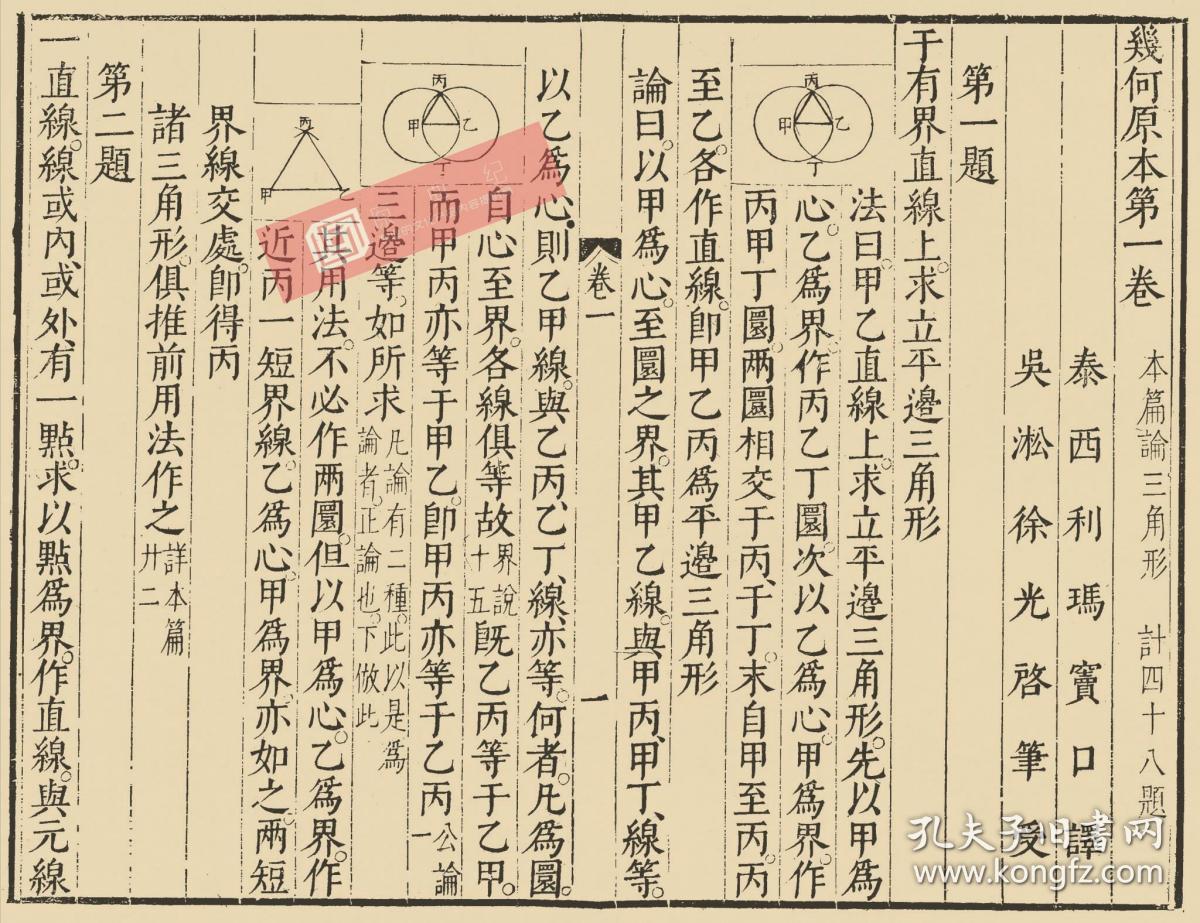 幾何原本第一卷 本篇論三角形 計四十八題
泰西利瑪竇口譯
吳淞徐光啓筆受
第一題
于有界直線上。求立平邊三角形
法曰。甲乙直線上。求立平邊三角形。先以甲爲
心。乙爲界。作丙乙丁圜。次以乙爲心。甲爲界。作
丙甲丁圜。兩圜相交于丙、于丁。末自甲至丙、丙
至乙。各作直線。卽甲乙丙爲平邊三角形
論曰。以甲爲心。至圜之界。其甲乙線。與甲丙、甲丁、線等。
以乙爲心。則乙甲線。與乙丙、乙丁、線、亦等。何者。凡爲圜。
自心至界。各線俱等故 界說十五 旣乙丙等于乙甲。
而甲丙亦等于甲乙。卽甲丙亦等于乙丙 公論一
三邊等。如所求 凡論有二種。此以是爲論者。正論也。下倣此
其用法。不必作兩圜。但以甲爲心。乙爲界。作
近丙一短界線。乙爲心。甲爲界。亦如之。兩短
界線交處。卽得丙
諸三角形。俱推前用法作之 詳本篇廿二
第二題
一直線。線或內、或外、有一點。求以點爲界。作直線。與元線
丙
甲
乙
丁
丙
甲
乙
丁
丙
甲
乙
卷一
一
孔夫子旧書网
www.kongfz.com